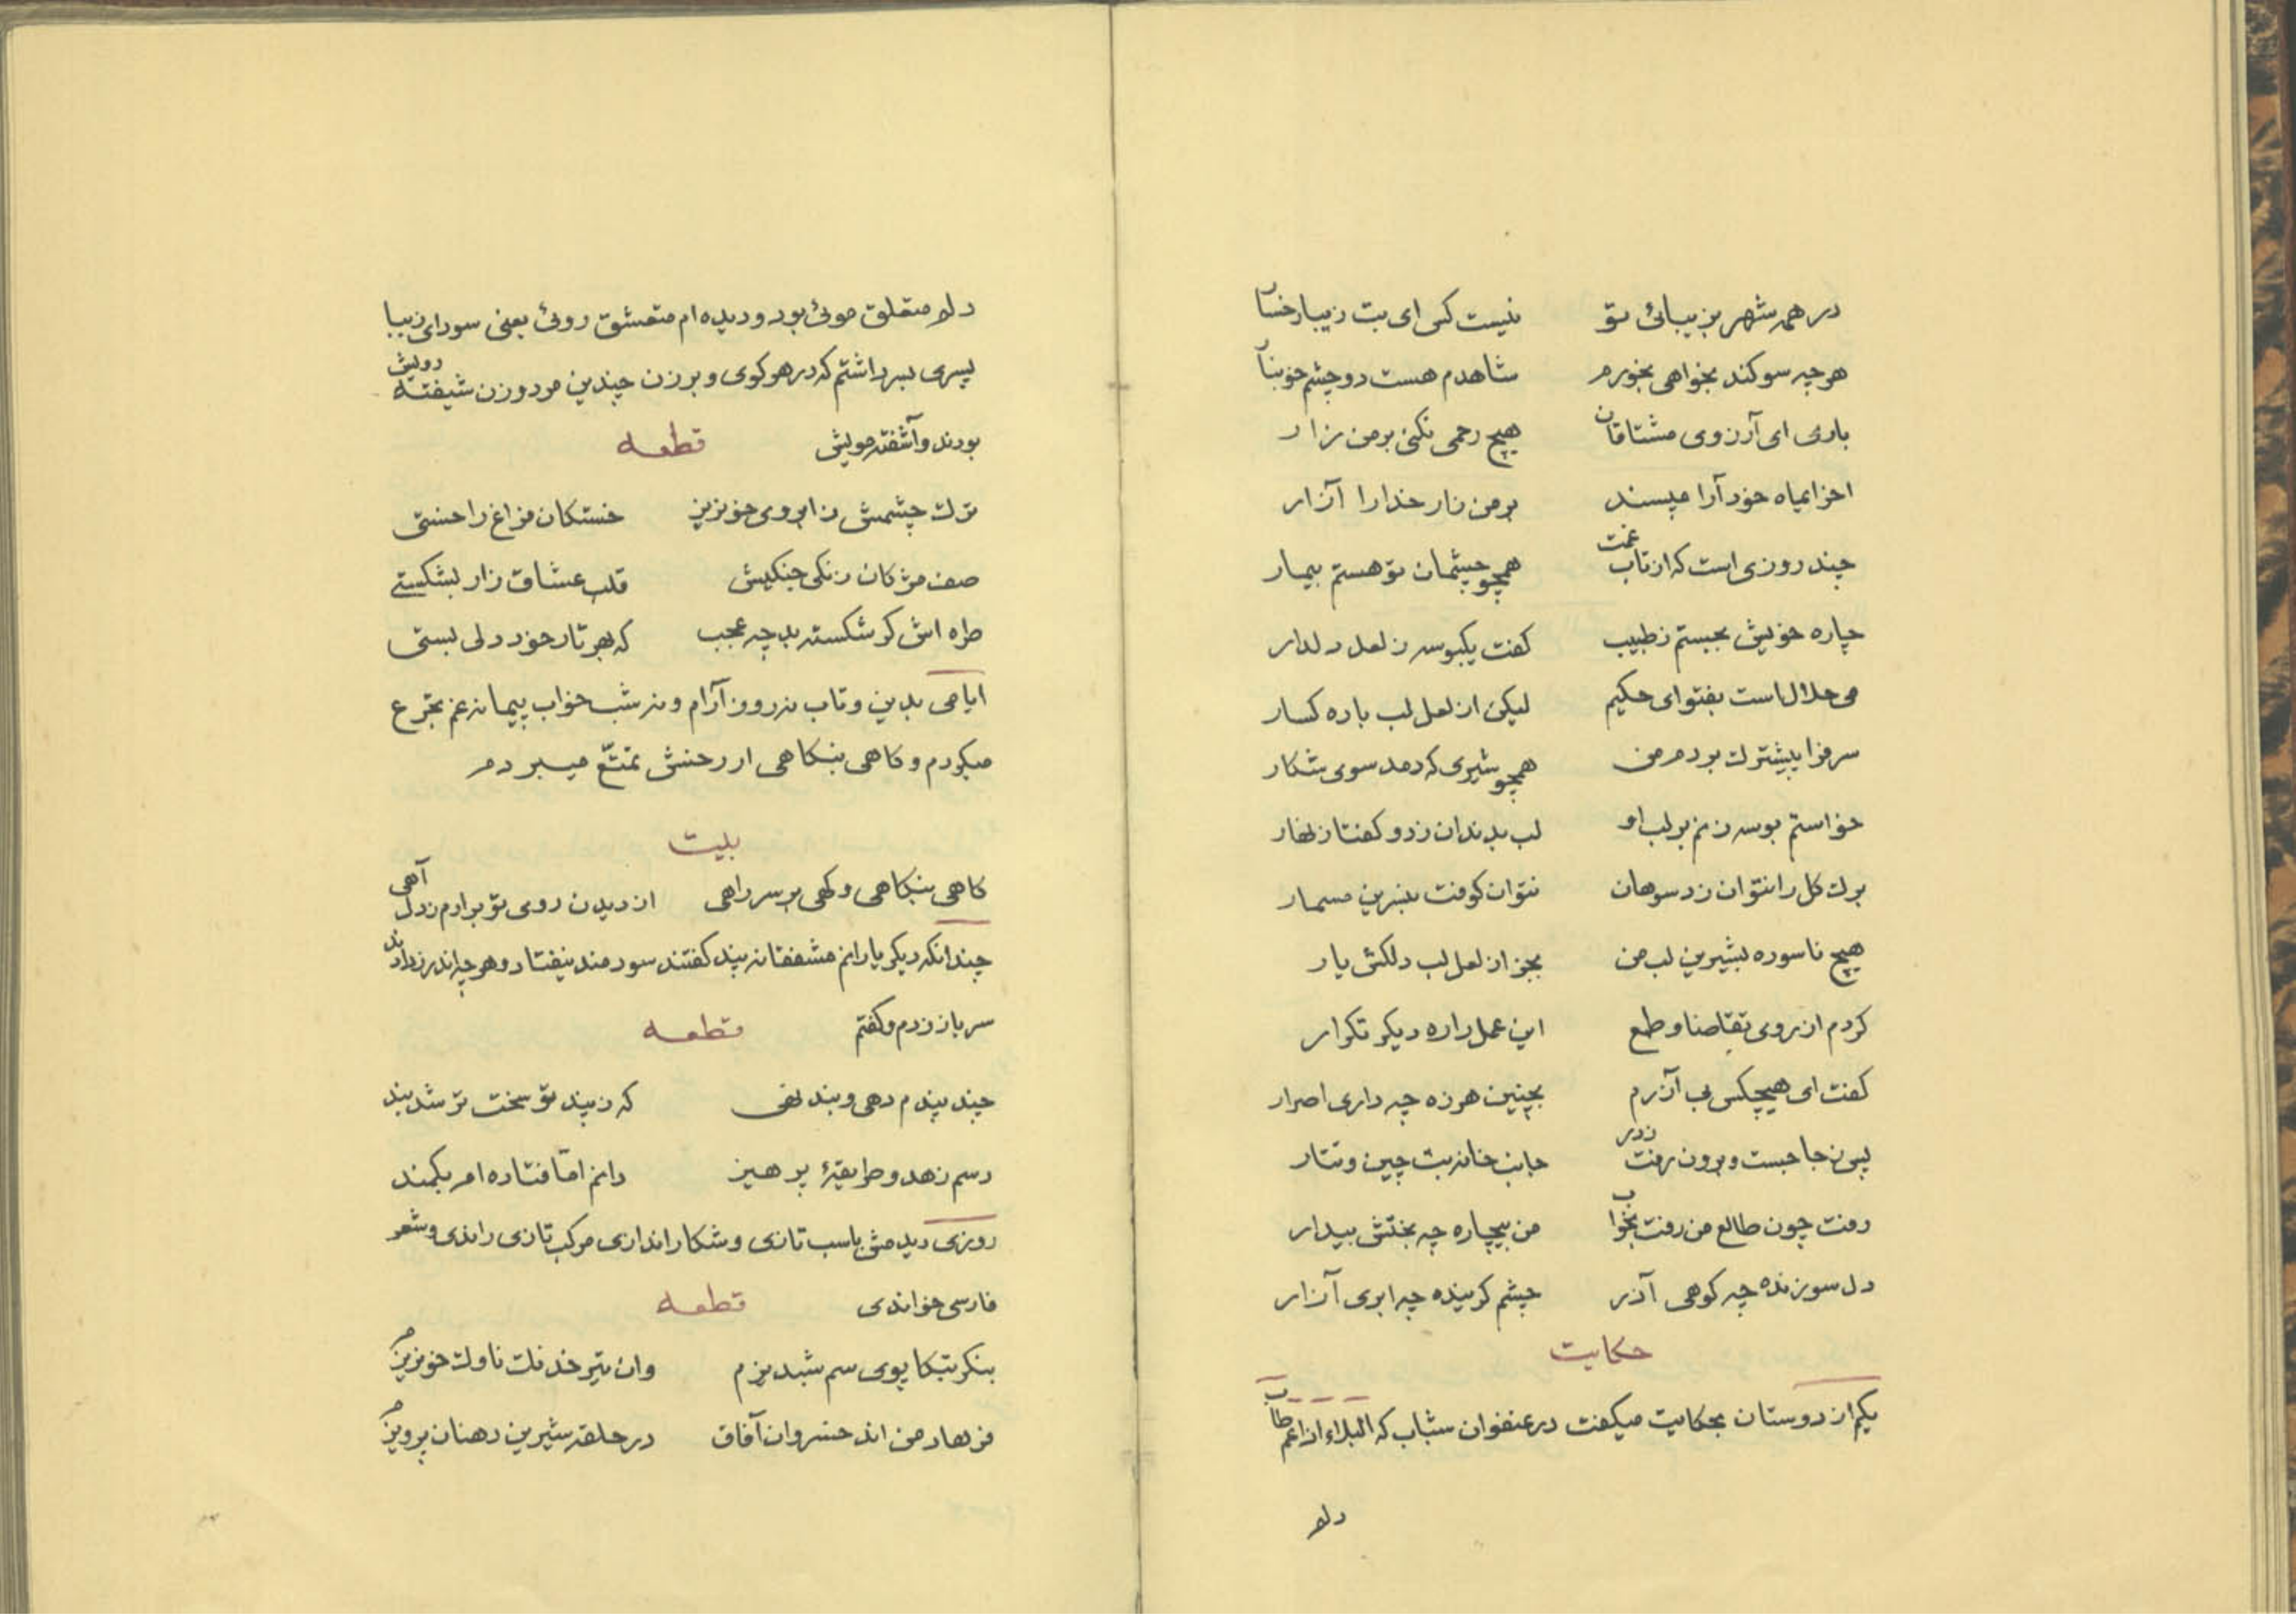 در همه شهر بزیبائی تو نیست کس ای بت زیبا رخسار
هرچه سوکند بخواهی بخورم شاهدم هست دو چشم خونبار
باری ای آرزوی مشتاقان هیچ رحمی نکنی بر من زار
اخر ایماه خود آرا مپسند بر من زار خدا را آزار
چند روزی است که از تاب غمت همچو چشمان تو هستم بیمار
چاره خویش بجستم ز طبیب کفت یکبوسه ز لعل دلدار
می حلال است بفتوای حکیم لیکن از لعل لب باده کسار
سر فرا پیشترک بردم من همچو شیری که دمد سوی شکار
خواستم بوسه زنم بر لب او لب بدندان زد و کفتا زنهار
برک کل را نتوان زد سوهان نتوان کوفت بنسرین مسمار
هیچ ناسوده بشیرین لب من بجز از لعل لب دلکش یار
کردم از روی تقاضا و طمع این عمل را ره دیکر تکرار
کفت ای هیچکس بی آزرم بچنین هرزه چه داری اصرار
پس ز جا جست و برون رفت ز در جانب خانه بت چین و تتار
رفت چون طالع من رفت بخواب من بیچاره چه بختش بیدار
دل سوزنده چه کوهی آذر چشم کرینده چه ابری آزار
حکایت
یکی از دوستان بحکایت میکفت در عنفوان شباب که البلاء اذا عم طاب
دلم
دلم متعلق موئی بود و دیده ام متعشق روئی یعنی سودای زیبا
پسری بسر داشتم که در هر کوی و برزن چندین مرد و زن شیفته رویش
بودند و آشفته مویش قطعه
ترک چشمش ز ابروی خونریز خستکان فراغ را خستی
صف مژکان زنکی جنکیش قلب عشاق زار بشکستی
طره اش کر شکسته بد چه عجب که بهر تار خود دلی بستی
ایامی بدین و تاب نه روز آرام و نه شب خواب پیمانه غم تجرع
میکردم و کاهی بنکاهی از رخش تمتّع میبردم
بیت
کاهی بنکاهی و کهی بر سر راهی از دیدن روی تو برارم ز دل آهی
چندانکه دیکر یارانم مشفقانه پند کفتند سودمند نیفتاد و هرچه اندرز دادند
سر باز زدم و کفتم قطعه
چند پندم دهی و بند نهی که ز پند تو سخت تر شد بند
رسم زهد و طریقهٔ پرهیز دانم امّا فتاده ام بکمند
روزی دیدمش باسب تازی و شکار اندازی مرکب تازی راندی و شعر
فارسی خواندی قطعه
بنکر بتکاپوی سم شبدیزم وان تیر خدنک ناوک خونریزم
فرهاد من اند خسروان آفاق در حلقه شیرین دهنان پرویزم